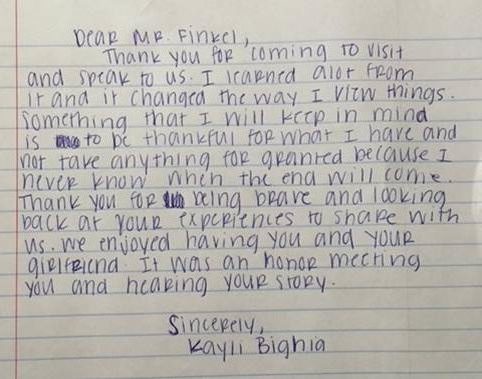 Dear Mr. Finkel,
Thank you for coming to visit
and speak to us. I learned alot from
it and it changed the way I view things.
Something that I will keep in mind
is to be thankful for what I have and
not take anything for granted because I
never know when the end will come.
Thank you for being brave and looking
back at your experiences to share with
us. We enjoyed having you and your
girlfriend. It was an honor meeting
you and hearing your story.
Sincerely,
Kayli Bighia